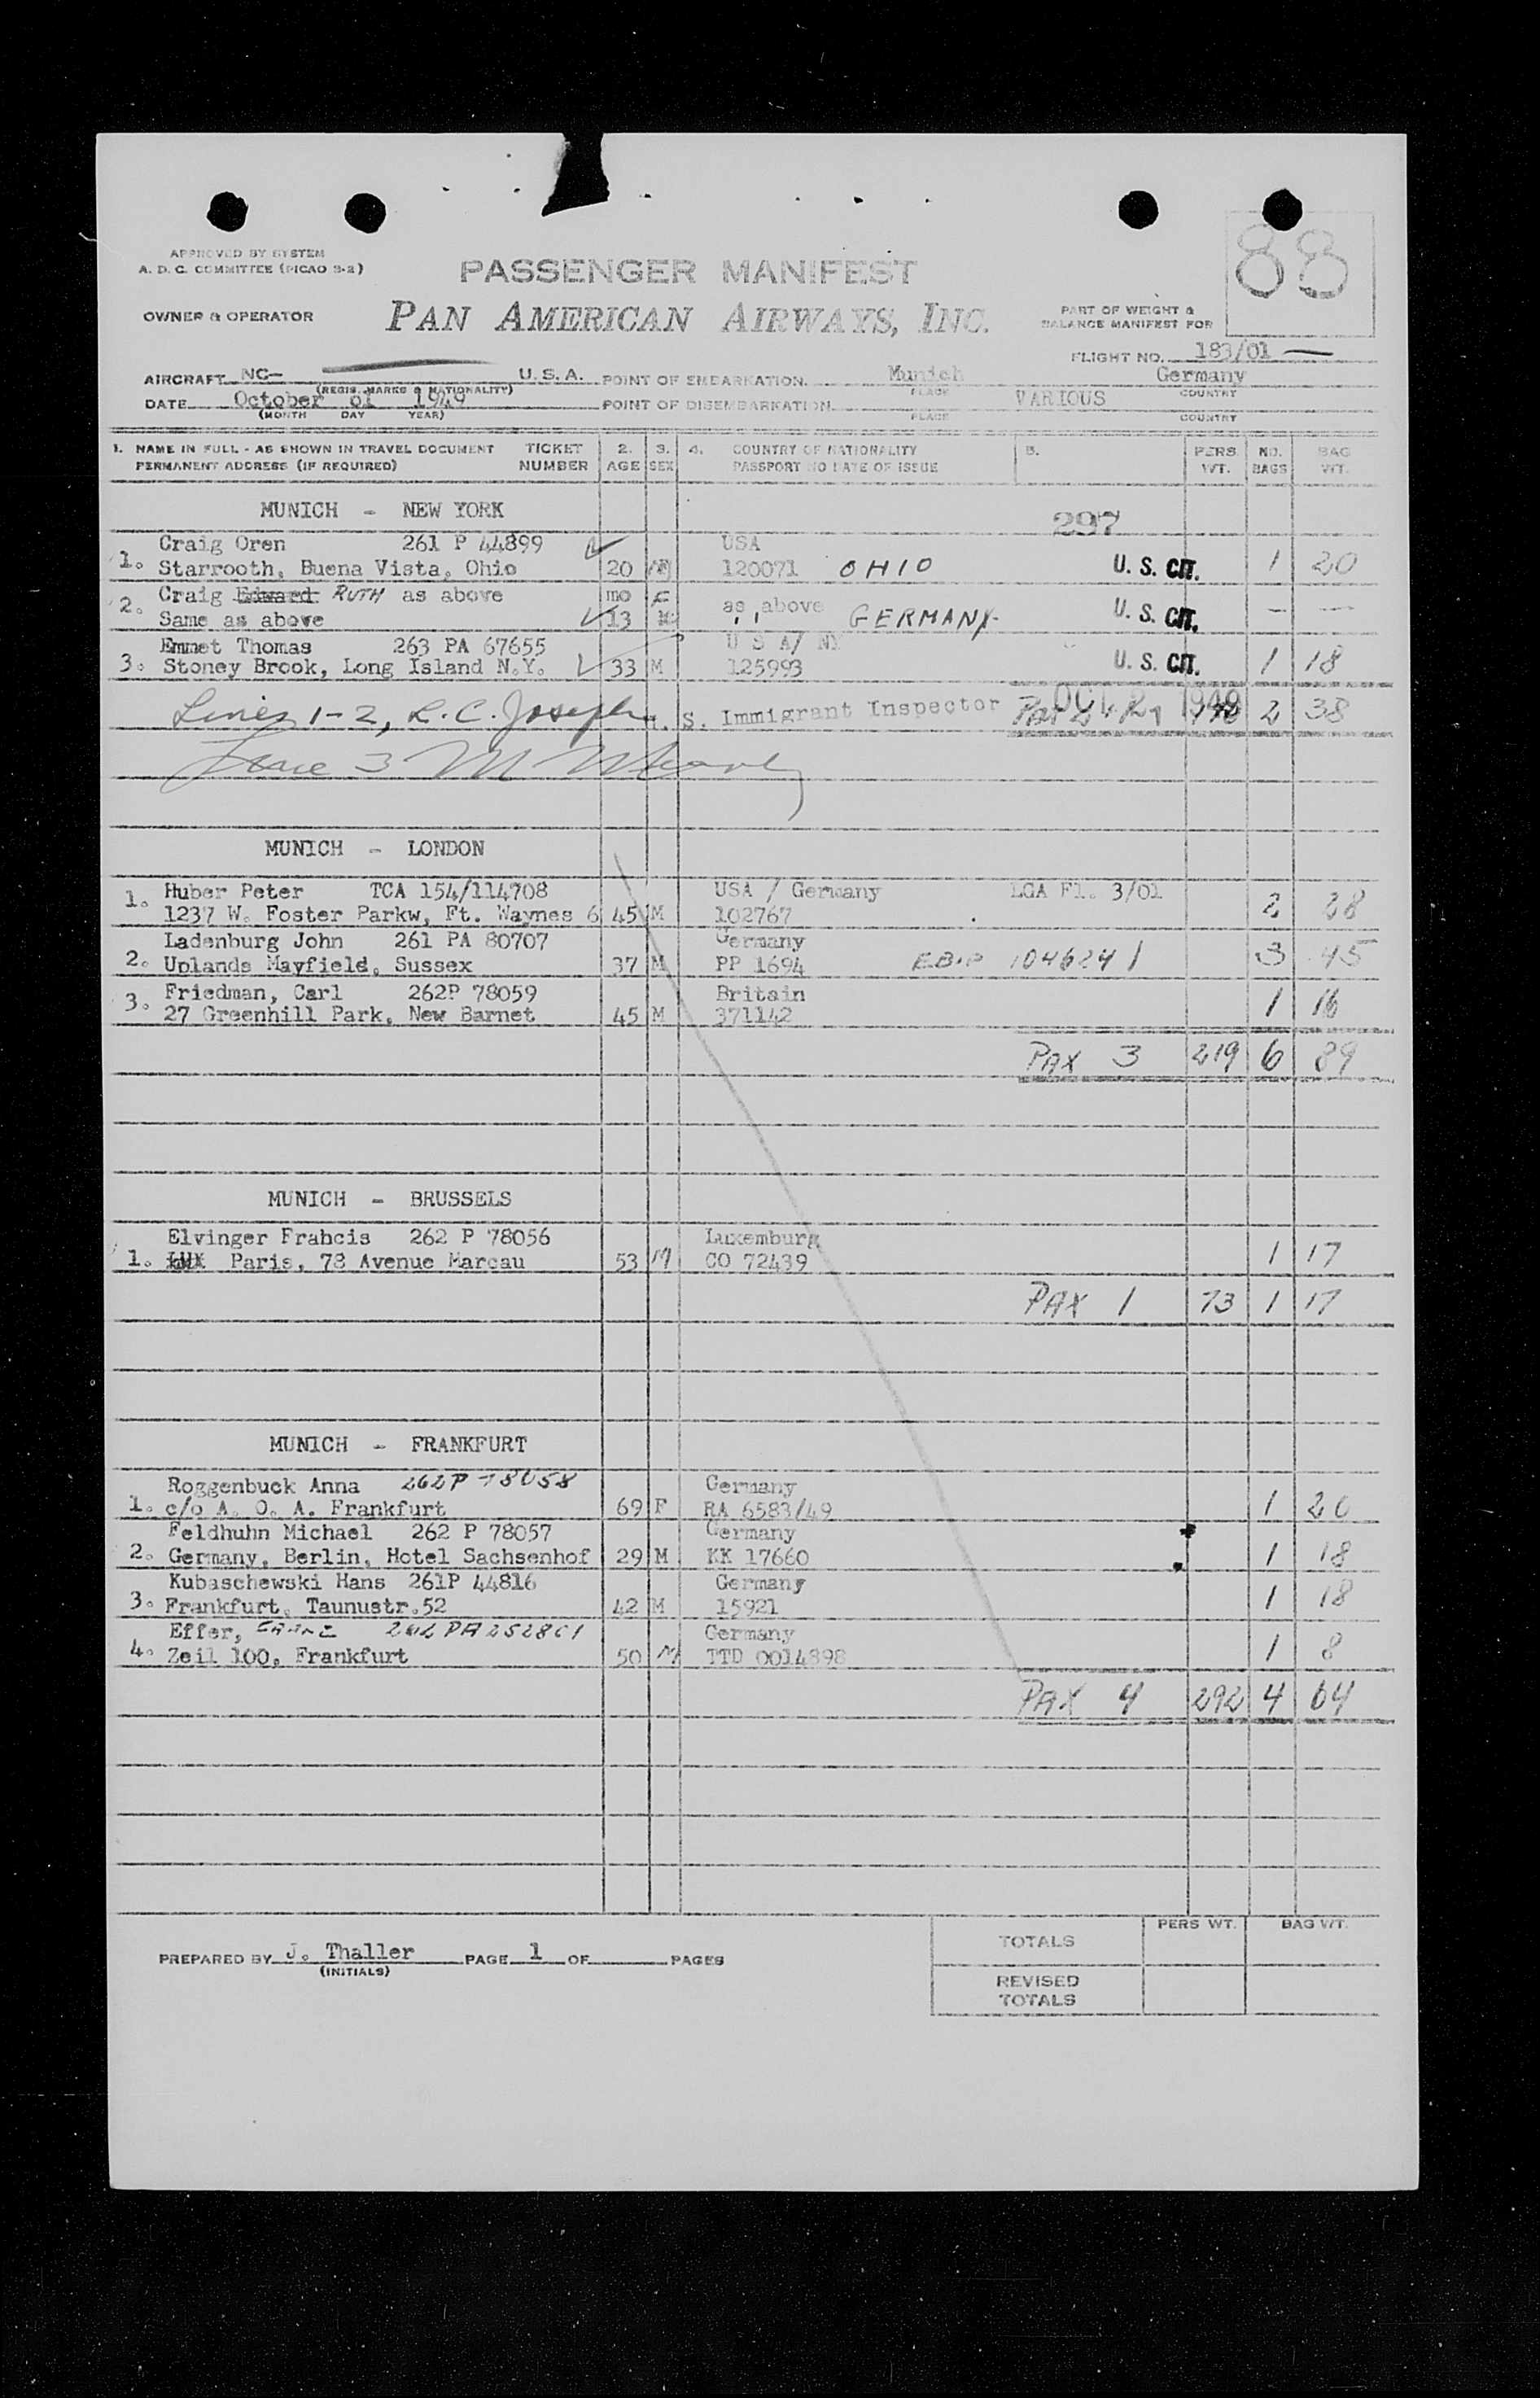 88
APPROVED BY SYSTEM
A. D. C. COMMITTEE (PICAO 3-2)
PASSENGER MANIFEST
OWNER & OPERATOR
PAN AMERICAN AIRWAYS, INC.
PART OF WEIGHT &
BALANCE MANIFEST FOR
FLIGHT NO. 183/01
AIRCRAFT NC- U. S. A. POINT OF EMBARKATION Munich Germany
(REGIS. MARKS & NATIONALITY) PLACE COUNTRY
DATE October 01 1949 POINT OF DISEMBARKATION VARIOUS
(MONTH DAY YEAR) PLACE COUNTRY
1. NAME IN FULL - AS SHOWN IN TRAVEL DOCUMENT TICKET 2. 3. 4. COUNTRY OF NATIONALITY 5. PERS NO. BAG
PERMANENT ADDRESS (IF REQUIRED) NUMBER AGE SEX PASSPORT NO DATE OF ISSUE WT. BAGS WT.
MUNICH - NEW YORK
297
Craig Oren 261 P 44899 USA
1. Starrooth, Buena Vista, Ohio 20 120071 OHIO U. S. CIT. 1 20
Craig Edward RUTH as above mo F as above
2. Same as above 13 " GERMANY U. S. CIT. - -
Emmet Thomas 263 PA 67655 U S A/ NY
3. Stoney Brook, Long Island N.Y. 33 M 125993 U. S. CIT. 1 18
Lines 1-2, R.C. Joseph U. S. Immigrant Inspector OCT 2 1949 PAX 2 38
Line 3 M
MUNICH - LONDON
Huber Peter TCA 154/114708 USA / Germany LGA Fl. 3/01
1. 1237 W. Foster Parkw, Ft. Waynes 6 45 M 102767 2 28
Ladenburg John 261 PA 80707 Germany
2. Uplands Mayfield, Sussex 37 M PP 1694 1046241 3 45
Friedman, Carl 262P 78059 Britain
3. 27 Greenhill Park, New Barnet 45 M 371142 1 16
PAX 3 219 6 89
MUNICH - BRUSSELS
Elvinger Frahcis 262 P 78056 Luxemburg
1. LUX Paris, 78 Avenue Marcau 53 M CO 72439 1 17
PAX 1 73 1 17
MUNICH - FRANKFURT
Roggenbuck Anna 262P 78058 Germany
1. c/o A. O. A. Frankfurt 69 F RA 6583/49 1 20
Feldhuhn Michael 262 P 78057 Germany
2. Germany, Berlin, Hotel Sachsenhof 29 M KK 17660 1 18
Kubaschewski Hans 261P 44816 Germany
3. Frankfurt, Taunustr.52 42 M 15921 1 18
Effer, 262 PA 252861 Germany
4. Zeil 100, Frankfurt 50 M TTD 0014898 1 8
PAX 4 292 4 64
PERS WT. BAG WT.
TOTALS
PREPARED BY J. Thaller PAGE 1 OF PAGES
(INITIALS)
REVISED
TOTALS